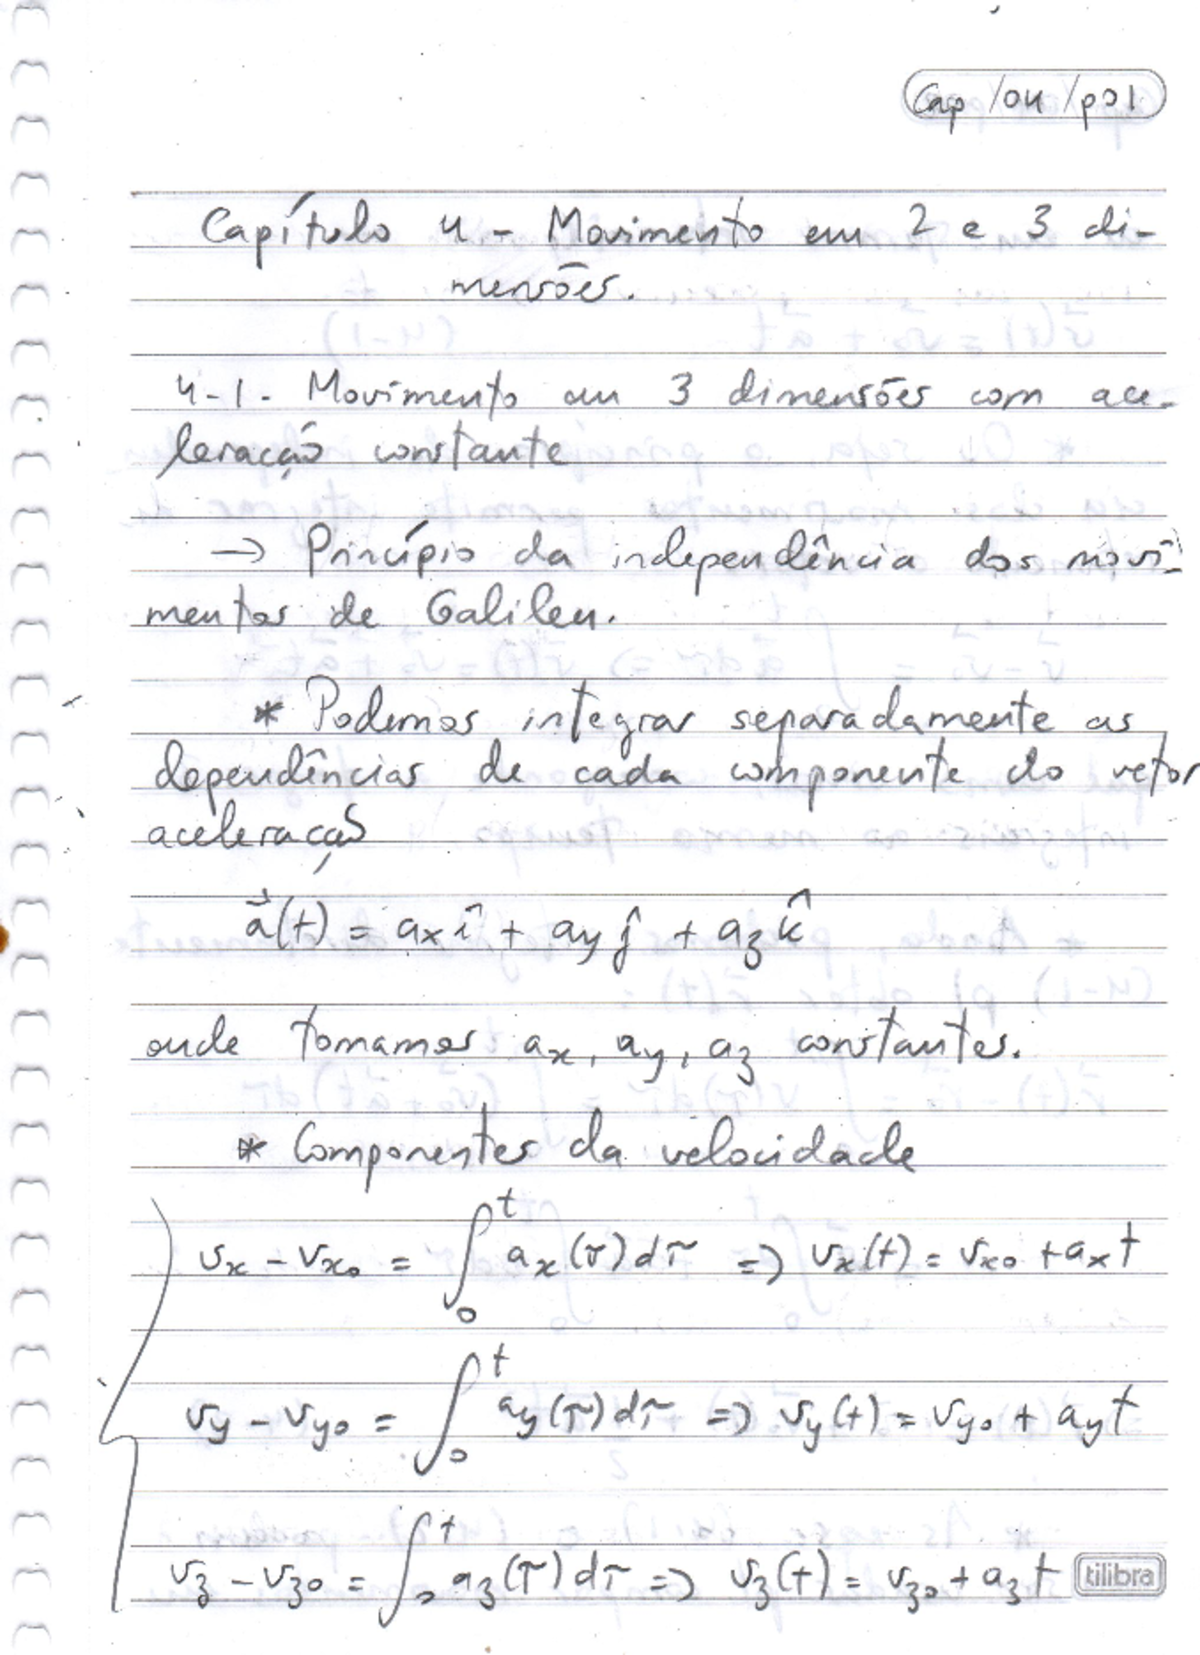 Cap /04 /p01
Capítulo 4 - Movimento em 2 e 3 di-
mensões.
4-1. Movimento em 3 dimensões com ace-
leração constante
→ Princípio da independência dos movi-
mentos de Galileu.
* Podemos integrar separadamente as
dependências de cada componente do vetor
aceleração
a⃗(t) = ax î + ay ĵ + az k̂
onde tomamos ax, ay, az constantes.
* Componentes da velocidade
vx - vx0 = ∫₀ᵗ ax(τ)dτ => vx(t) = vx0 + axt
vy - vy0 = ∫₀ᵗ ay(τ)dτ => vy(t) = vy0 + ayt
vz - vz0 = ∫₀ᵗ az(τ)dτ => vz(t) = vz0 + azt
tilibra